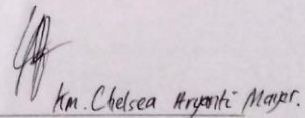 Km. Chelsea Aryanti Mayer.